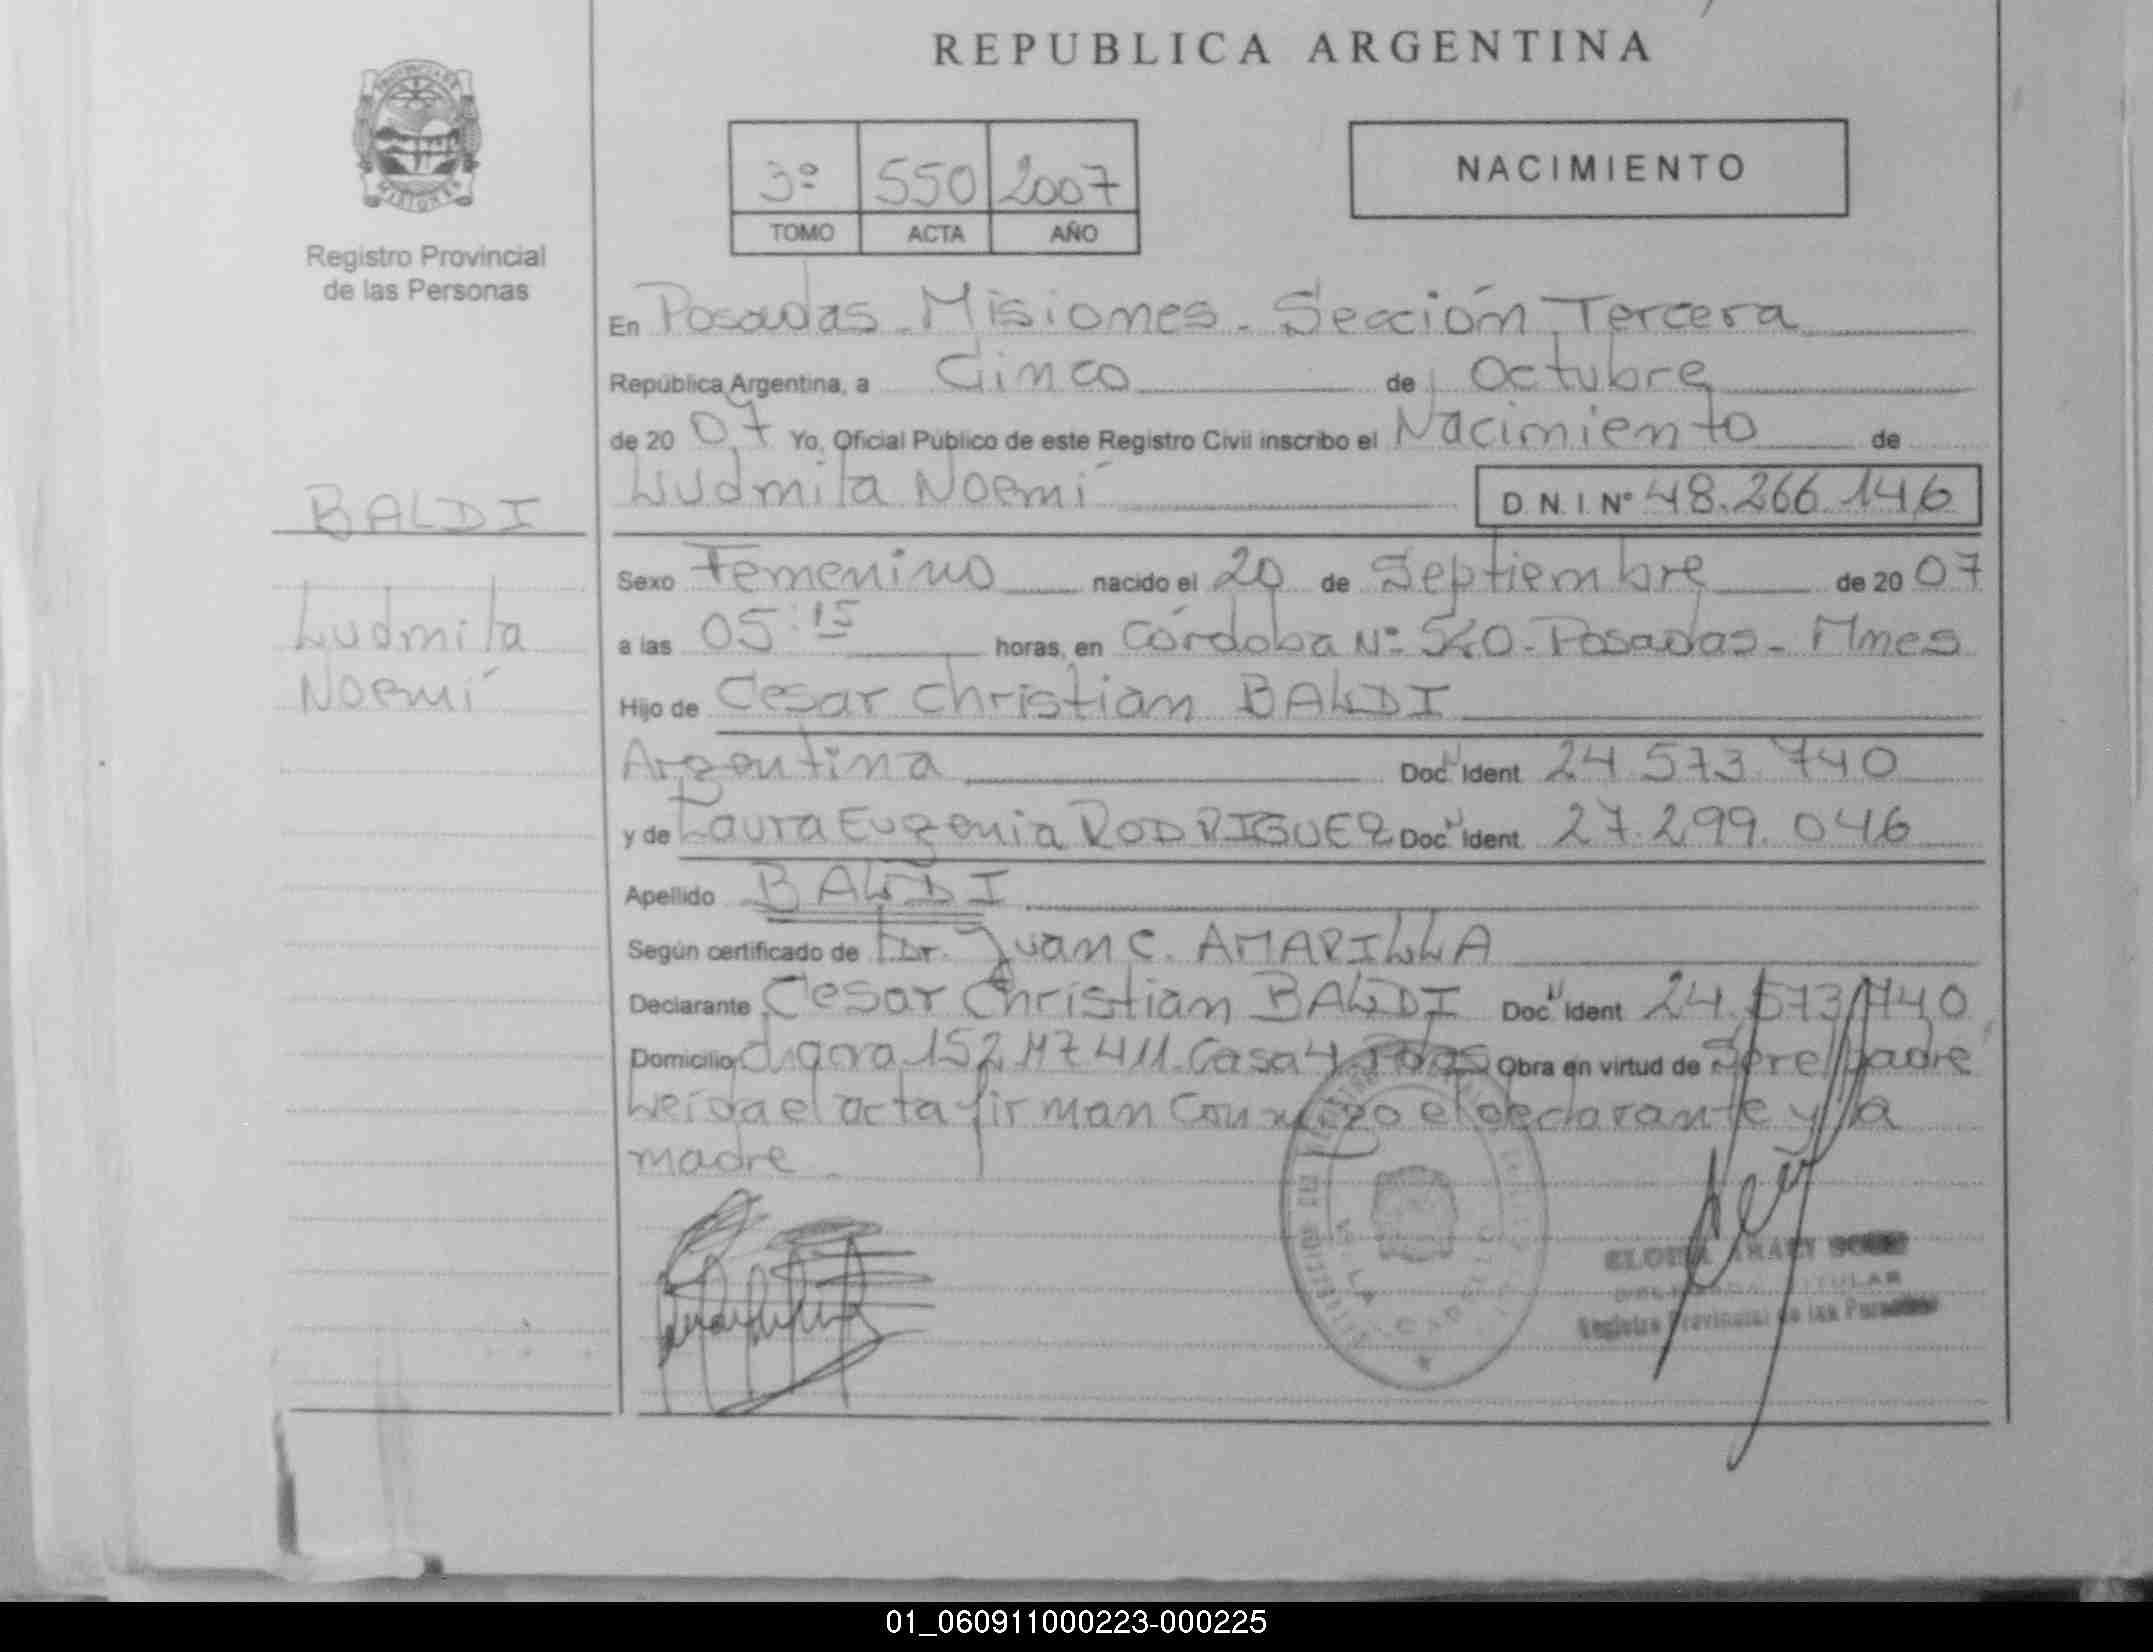 REPUBLICA ARGENTINA
NACIMIENTO
3º 550 2007
TOMO ACTA AÑO
Registro Provincial
de las Personas
En Posadas - Misiones - Sección Tercera
República Argentina, a Cinco de Octubre
de 20 07 Yo, Oficial Público de este Registro Civil inscribo el Nacimiento de
Ludmila Noemí D.N.I. Nº 48.266.146
BALDI
Ludmila
Noemí
Sexo Femenino nacido el 20 de Septiembre de 20 07
a las 05:15 horas, en Córdoba Nº 540 - Posadas - Mnes
Hijo de Cesar Christian BALDI
Argentina Doc. Ident 24.573.740
y de Laura Eugenia RODRIGUEZ Doc. Ident. 27.299.046
Apellido BALDI
Según certificado de Dr. Juan C. AMARILLA
Declarante Cesar Christian BALDI Doc. Ident 24.573.740
Domicilio 152 Mz 411 Casa 4 Pdas Obra en virtud de Ser el padre
Leída el acta firman conmigo el declarante y la
madre
TITULAR
Registro Provincial de las Personas
01_060911000223-000225